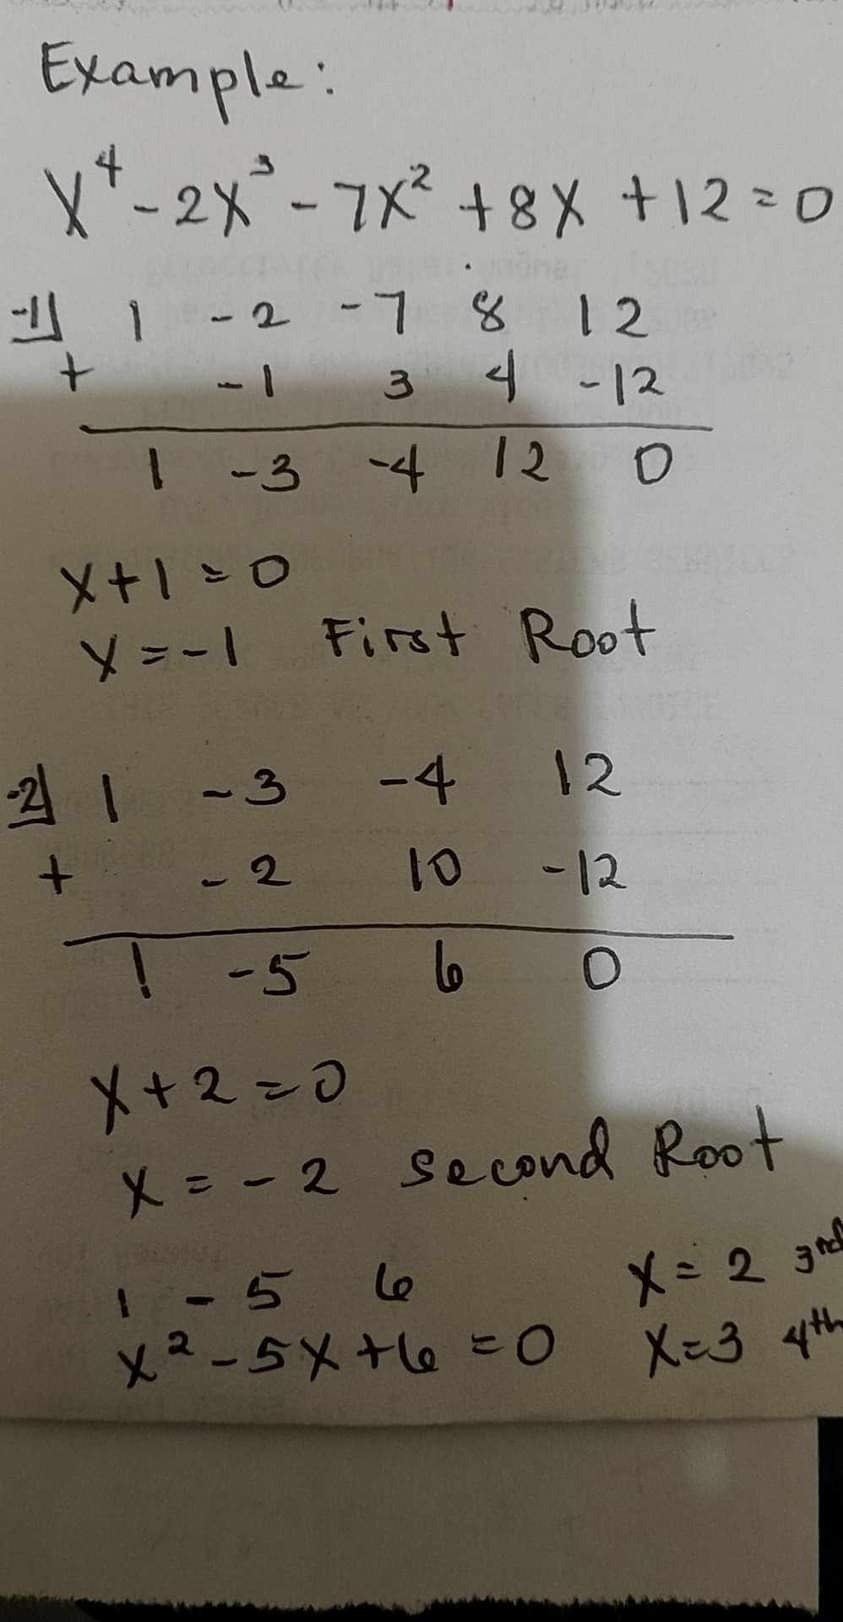 Example:
x⁴ - 2x³ - 7x² + 8x + 12 = 0
-1| 1 -2 -7 8 12
+ -1 3 4 -12
1 -3 -4 12 0
x + 1 = 0
x = -1 First Root
-2| 1 -3 -4 12
+ -2 10 -12
1 -5 6 0
x + 2 = 0
x = -2 Second Root
1 -5 6 x = 2 3rd
x² - 5x + 6 = 0 x = 3 4th